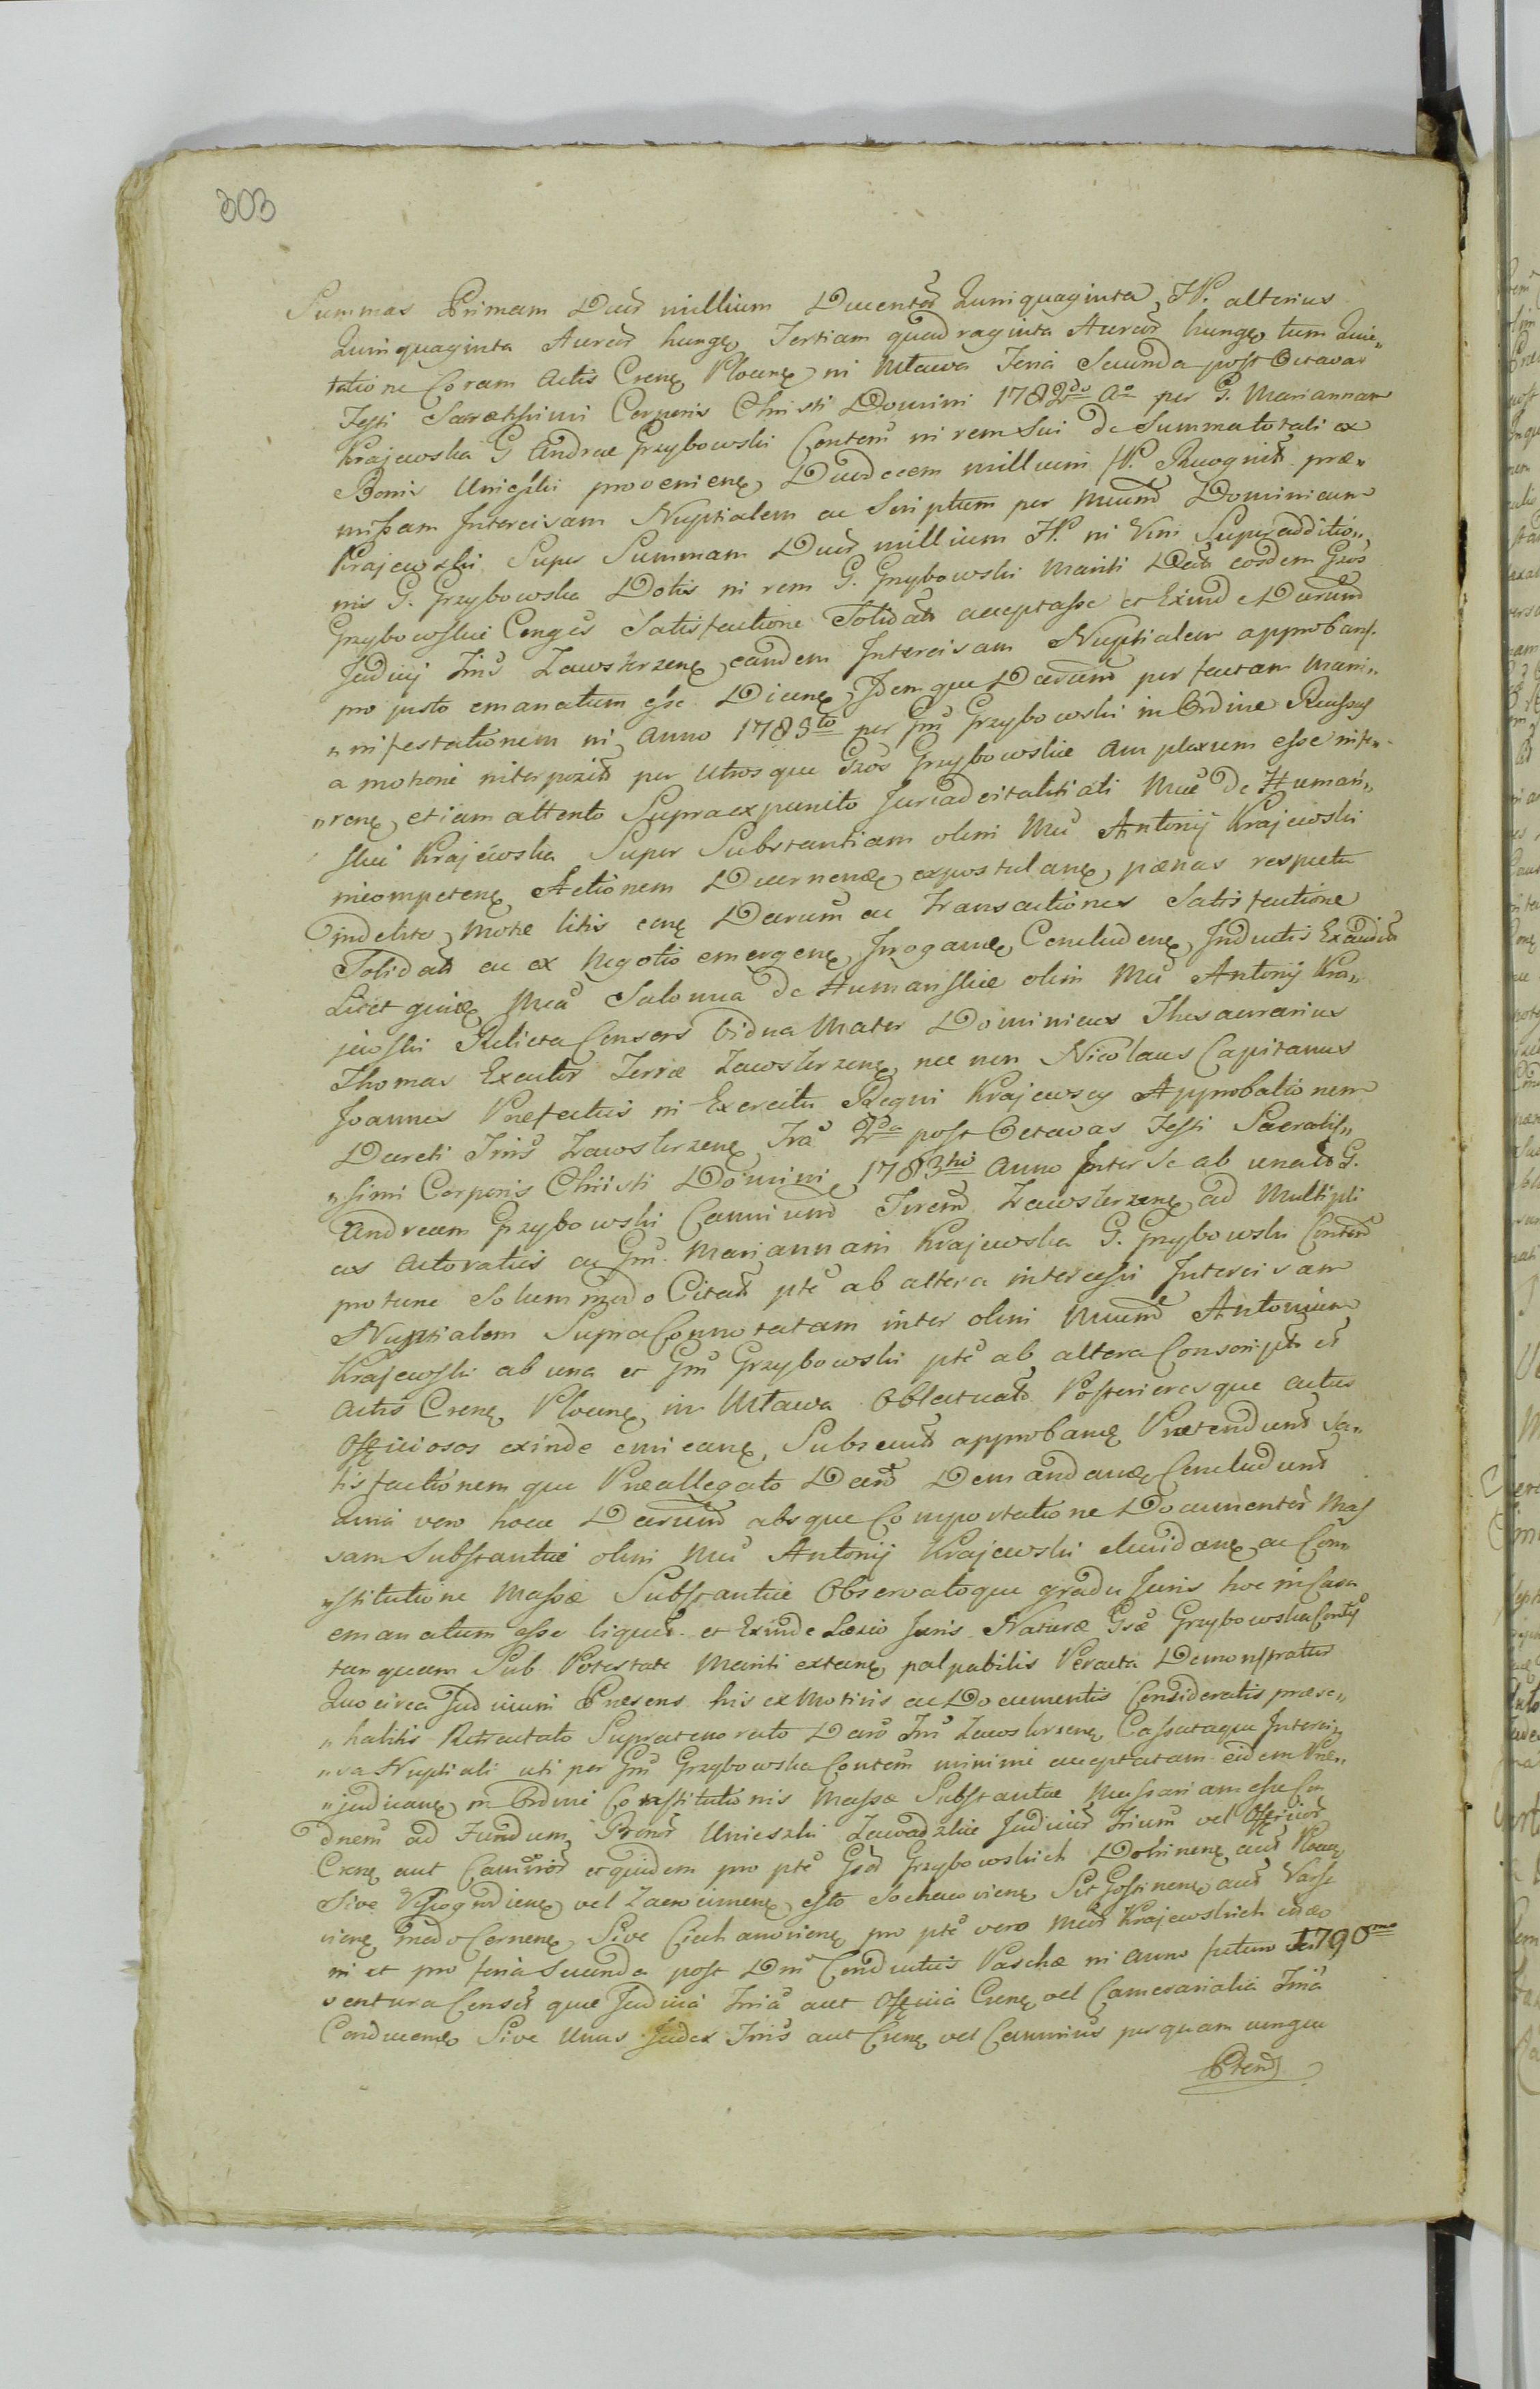 303
Summas Primam Duor millium Ducentor Quinquaginta, Fl. alterius
Quinquaginta Aureor hung, Tertiam quadraginta Aureor hung, tum Quie„
tatione Coram Actis Cren, Plocen, in Mława Feria Secunda post Octavas
Festi Sacratissimi Corporis Christi Domini 1782do Ao per G. Mariannam
Krajewska G Andreae Grzybowski Contem in rem Sui de Summa totali ex
Bonis Unieszki provenien, Duodecem millium Fl. Recognit. præ„
missam Intercisam Nuptialem ac Scriptum per Mcum Dominicum
Krajewski Super Summam Duor millium Fl. in Vim Superadditio„
nis G. Grzybowska Dotis in rem G. Grzybowski Mariti Dat eosdem Gsos
Grzybowskie Conges Satisfactione Solidat acceptasse et Exinde Decretum
Judicij Tris Zawskrzen, eandem Intercisam Nuptialem approbans
pro justo emanatum esse Dicen, Idemque Decretum per factam Mani„
„nifestationem in Anno 1785to per Gm Grzybowski in Ordine Reussus
a motione interposit per Utrosque Gsos Grzybowskie amplexum esse infe„
„ren, etiam attento Supraexpunito Juri advitalitiali Mcae de Humań„
skie Krajewska Super Substantiam olim Mci Antonij Krajewski
incompeten, Actionem Decernen, expostulan, pænas respectu
indebite, Motæ litis con, Decretum ac Transactiones Satisfactione
Solidat ac ex Negotio emergen, Irrogan, Concluden, Inductis Exaudit
Licet quidem Mca Salomea de Humańskie olim Mci Antonij Kra„
jewski Relicta Consors Vidua Mater Dominicus Thesaurarius
Thomas Exactor Terræ Zawskrzen, nec non Nicolaus Capitanus
Joannes Præfectus in Exercitu Regni Krajewscy Approbationem
Decreti Tris Zawskrzen, Fra 2da post Octavas Festi Sacratis„
„simi Corporis Christi Domini 1783tio Anno Inter Se ab una et G.
Andream Grzybowski Camrium Trem Zawskrzen, ad Multipli
cis Actoratus ac Gm. Mariannam Krajewska G. Grzybowski Contem
pro tunc Solummodo Citat pte ab altera intercessi Intercisam
Nuptialem Supra Connotatam inter olim Mcum Antonium
Krajewski ab una et Gm Grzybowski pte ab altera Conscript et
Actis Cren, Plocen, in Mława Oblatuat Posterioresque actus
Officiosos exinde emican, Subsecut approban, Prætendunt Sa„
tisfactionemque Præallegato Decreto Demandan, Concludunt
Quia vero hocce Decretum absque Comportatione Documentor Mas
sam Substantiæ olim Mci Antonij Krajewski elucidan, ac Con„
„stitutione Massæ Substantiæ Observatoque gradu Juris hoc in Casu
emanatum esse liquet. et Exinde Læsio Juris Naturæ Gsæ Grzybowska Contis
tanquam Sub Potestate Mariti extan, palpabilis Peracta Demonstratur
Quocirca Judicium Præsens his ex Motivis ac Documentis Consideratis præse„
„habitis Retractato Supratenorato Decreto Tris Zawskrzen, Cassataque Interci„
„sa Nuptiali uti per Gm Grzybowska Contem minime acceptatam eidem Præ„
„judican, in Ordine Constitutionis Massæ Substantiæ Necessariam esse Con
dnem ad Fundum Bonor Unieszki Zawadzkie Judicior Trium vel Officior
Cren, aut Camrior et quidem pro pte Gsor Grzybowskich Dobrinen, aut Plocen,
Sive Vyszogrodien, vel Zacrocimen, esto Sochaczovien, Sit Gostinen, aut Varsa
vien, modo Cernen, Sive Ciechanovien, pro pte vero Mcor Krajewskich
in et pro feria Secunda post Dm Conductus Paschæ in Anno futuro 1790mo
ventura Censet quæ Judicia Tria aut Officia Cren, vel Camerarialia Tria
Conducen, Sive Unus Judex Tris aut Cren, vel Camrius per quamcunque
Ptem